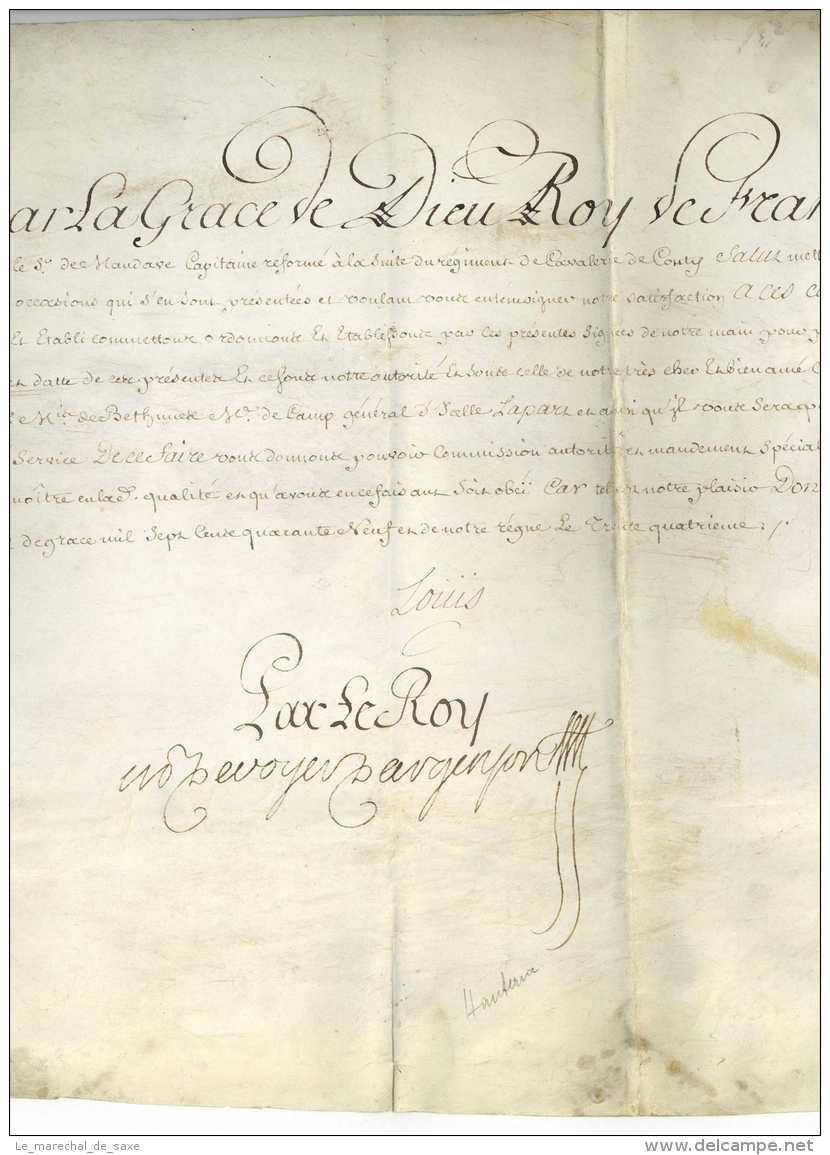 ar La Grace de Dieu Roy de Fran
le Sr. des Mandave Capitaine réformé à la suite du régiment de Cavalerie de Conty Salut mett
occasions qui s'en sont présentées et voulant vous en témoigner notre satisfaction A Ces C
et Etabli commettons Ordonnons et Etablissons par ces présentes Signées de notre main pour
datte de ces présentes Et ce sous notre autorité Et sous celle de notre très cher Et bien amé
de Bethune Me. de Camp général d'Icelle La part et ainsi qu'il vous sera
Service De ce faire vous donnons pouvoir commission autorité et mandement Spécial
noître en lad. qualité et qu'à vous en ce faisant soit obéi Car tel est notre plaisir Don
de grace mil Sept Cens quarante Neuf et de notre régne Le Trente quatrieme ./.
Louis
Par Le Roy
De voyer D'argenson
Le_marechal_de_saxe
www.delcampe.net